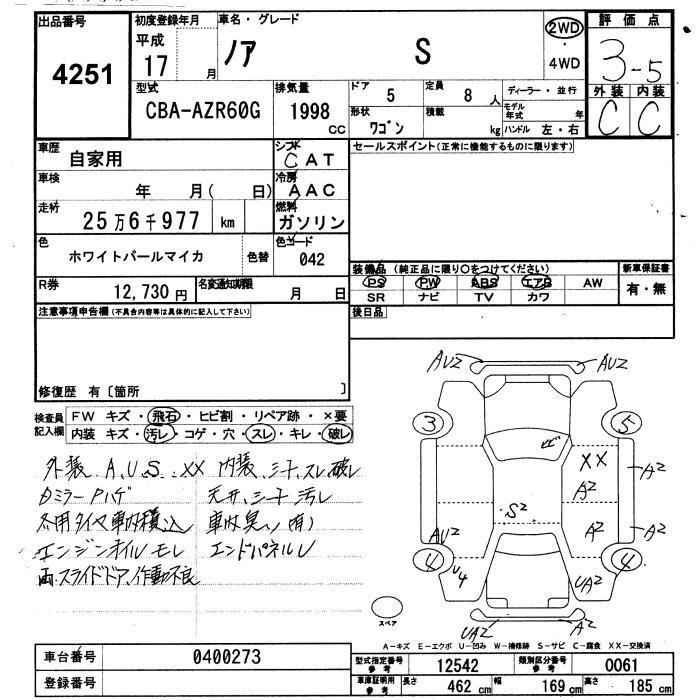 出品番号 初度登録年月 車名・グレード 評価点
4251 平成 17 月 ノア S 2WD ・ 4WD 3-5
型式 排気量 ドア 5 定員 8 人 ディーラー・並行 外装 内装
CBA-AZR60G 1998 cc 形状 ワゴン 積載 kg モデル年式 年 C C
ハンドル 左・右
車歴 自家用 シフト CAT セールスポイント(正常に機能するものに限ります)
車検 年 月( 日) 冷房 AAC
走行 25万6千977 km 燃料 ガソリン
色 ホワイトパールマイカ 色替 色コード 042
装備品 (純正品に限り○をつけてください) 新車保証書
R券 12,730円 名変通知期限 月 日 PS PW ABS エアB AW 有・無
SR ナビ TV カワ
注意事項申告欄(不具合内容等は具体的に記入して下さい) 後日品
修復歴 有〔箇所 〕
検査員記入欄 FW キズ・飛石・ヒビ割・リペア跡・×要
内装 キズ・汚レ・コゲ・穴・スレ・キレ・破レ
外装 A、U、S、XX 内装、シート、スレ破レ
ミラーPハゲ 天井、シート汚レ
冬用タイヤ車内積込 車内臭い(有)
エンジンオイルモレ エンドパネルU
両スライドドア、作動不良
AU2 AU2
3 5
XX A2
S2 A2 A2
AU2
4 U4 UA2 4
スペア UA2 A2
A-キズ E-エクボ U-凹み W-補修跡 S-サビ C-腐食 XX-交換済
車台番号 0400273 型式指定番号 参考 12542 類別区分番号 参考 0061
登録番号 車庫証明用 参考 長さ 462 cm 幅 169 cm 高さ 185 cm